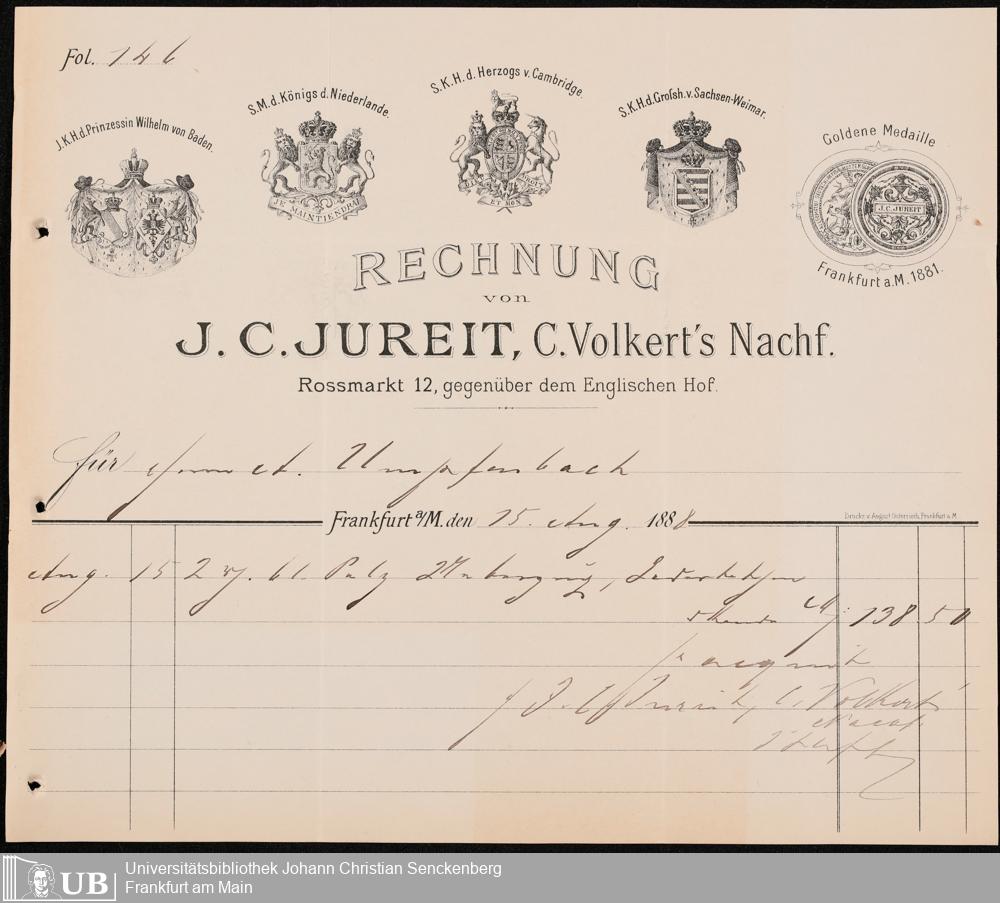 Fol. 146
J.K.H.d.Prinzessin Wilhelm von Baden.
S.M.d.Königs d.Niederlande.
JE MAINTIENDRAI
S.K.H.d.Herzogs v.Cambridge.
ET MON
S.K.H.d.Groſsh.v.Sachsen-Weimar.
Goldene Medaille
J.C.JUREIT
Frankfurt a.M.1881.
RECHNUNG
von
J. C. JUREIT, C.Volkert's Nachf.
Rossmarkt 12, gegenüber dem Englischen Hof.
für Herrn A. Umpfenbach
Frankfurt a/M. den 15. Aug. 1888
Druck v. August Osterrieth, Frankfurt a.M.
Aug. 15 2
M 138 50
J. C. Jureit, C. Volkert's
Universitätsbibliothek Johann Christian Senckenberg
Frankfurt am Main
UB